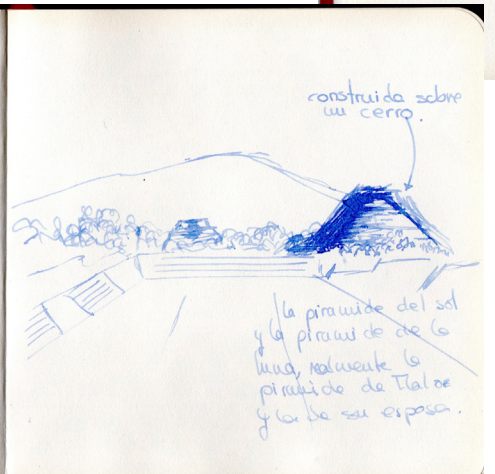 construida sobre
un cerro.
la piramide del sol
y la piramide de la
luna, realmente la
piramide de Tlaloc
y la de su esposa.